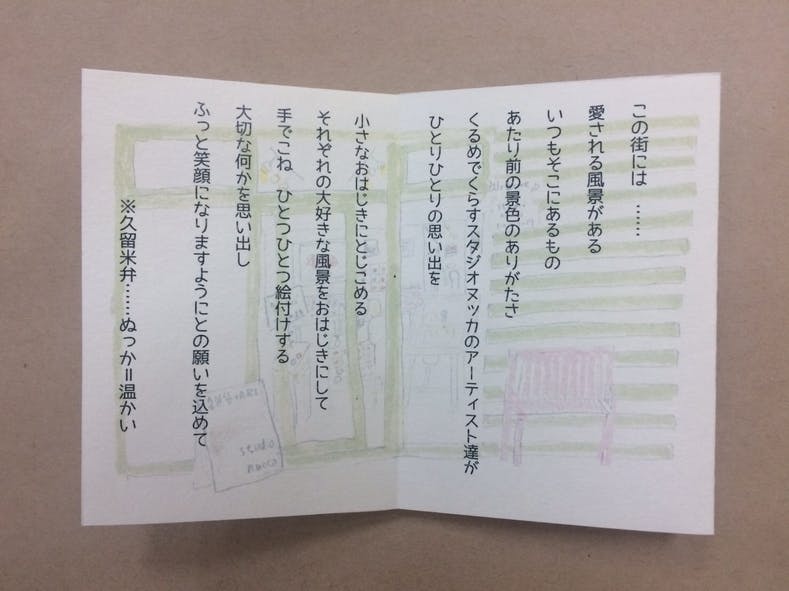 この街には ……
愛される風景がある
いつもそこにあるもの
あたり前の景色のありがたさ
くるめでくらすスタジオヌッカのアーティスト達が
ひとりひとりの思い出を
小さなおはじきにとじこめる
それぞれの大好きな風景をおはじきにして
手でこね ひとつひとつ絵付けする
大切な何かを思い出し
ふっと笑顔になりますようにとの願いを込めて
※久留米弁……ぬっか=温かい